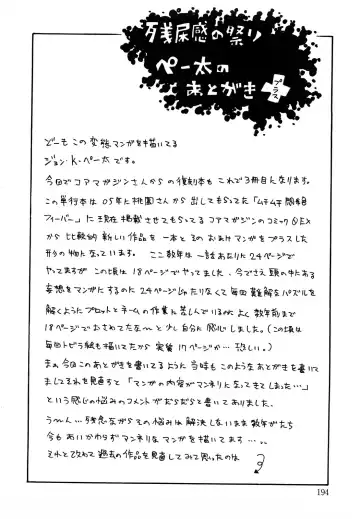 残尿感の祭り
ペー太の
あとがき
プラス
どーもこの変態マンガを描いてる
ジョン・K・ペー太です。
今回でコアマガジンさんからの復刻本もこれで3冊目になります。
この単行本は05年に桃園さんから出してもらってた「ムチムチ関係
フィーバー」に現在掲載させてもらってるコアマガジンのコミックOEX
から比較的新しい作品を一本とそのおまけマンガをプラスした
形の物になっています。ここ数年は一話あたりに24ページで
やってますがこの頃は18ページでやってました、今でさえ頭の中にある
妄想をマンガにするのに24ページじゃたりなくて毎回難解なパズルを
解くようにプロットとネームの作業に苦しんでいるのによく数年前まで
18ページでおさめてたな〜と少し自分に感心しました。(この頃は
毎回トビラ絵も描いてたから実質17ページか…恐しい。)
まぁ今回このあとがきを書いてるように当時もこのようなあとがきを書いて
ましてそれを見直すと「マンガの内容がマンネリになってきてしまった…」
という感じの悩みのコメントがだらだらと書いてありました、
う〜ん…残念ながらその悩みは解決しないまま数年がたち
今もあいかわらずマンネリなマンガを描いてます…。
それと改めて過去の作品を見直してみて思ったのは
194